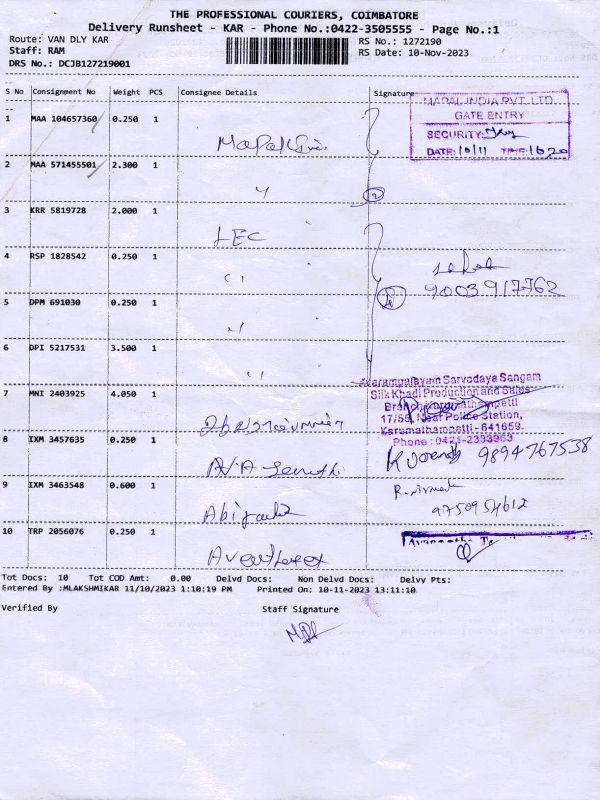 THE PROFESSIONAL COURIERS, COIMBATORE
Delivery Runsheet - KAR - Phone No.:0422-3505555 - Page No.:1
Route: VAN DLY KAR RS No.: 1272190
Staff: RAM RS Date: 10-Nov-2023
DRS No.: DCJB127219001
S No Consignment No Weight PCS Consignee Details Signature
MAPAL INDIA PVT. LTD.
GATE ENTRY
1 MAA 104657360 0.250 1
SECURITY:
DATE: 10/11 TIME: 1620
2 MAA 571455501 2.300 1
3 KRR 5819728 2.000 1
LEC
4 RSP 1828542 0.250 1
9003917762
5 DPM 691030 0.250 1
6 DPI 5217531 3.500 1
Sarvodaya Sangam
Silk Khadi Production and Sales
7 MNI 2403925 4.050 1
Branch Karumathampatti
17/55, Near Police Station,
Karumathampatti - 641659.
8 IXM 3457635 0.250 1
Phone : 0421-2333963
9894767538
9 IXM 3463548 0.600 1
9750954612
10 TRP 2056076 0.250 1
Tot Docs: 10 Tot COD Amt: 0.00 Delvd Docs: Non Delvd Docs: Delvy Pts:
Entered By :MLAKSHMIKAR 11/10/2023 1:10:19 PM Printed On: 10-11-2023 13:11:10
Verified By Staff Signature